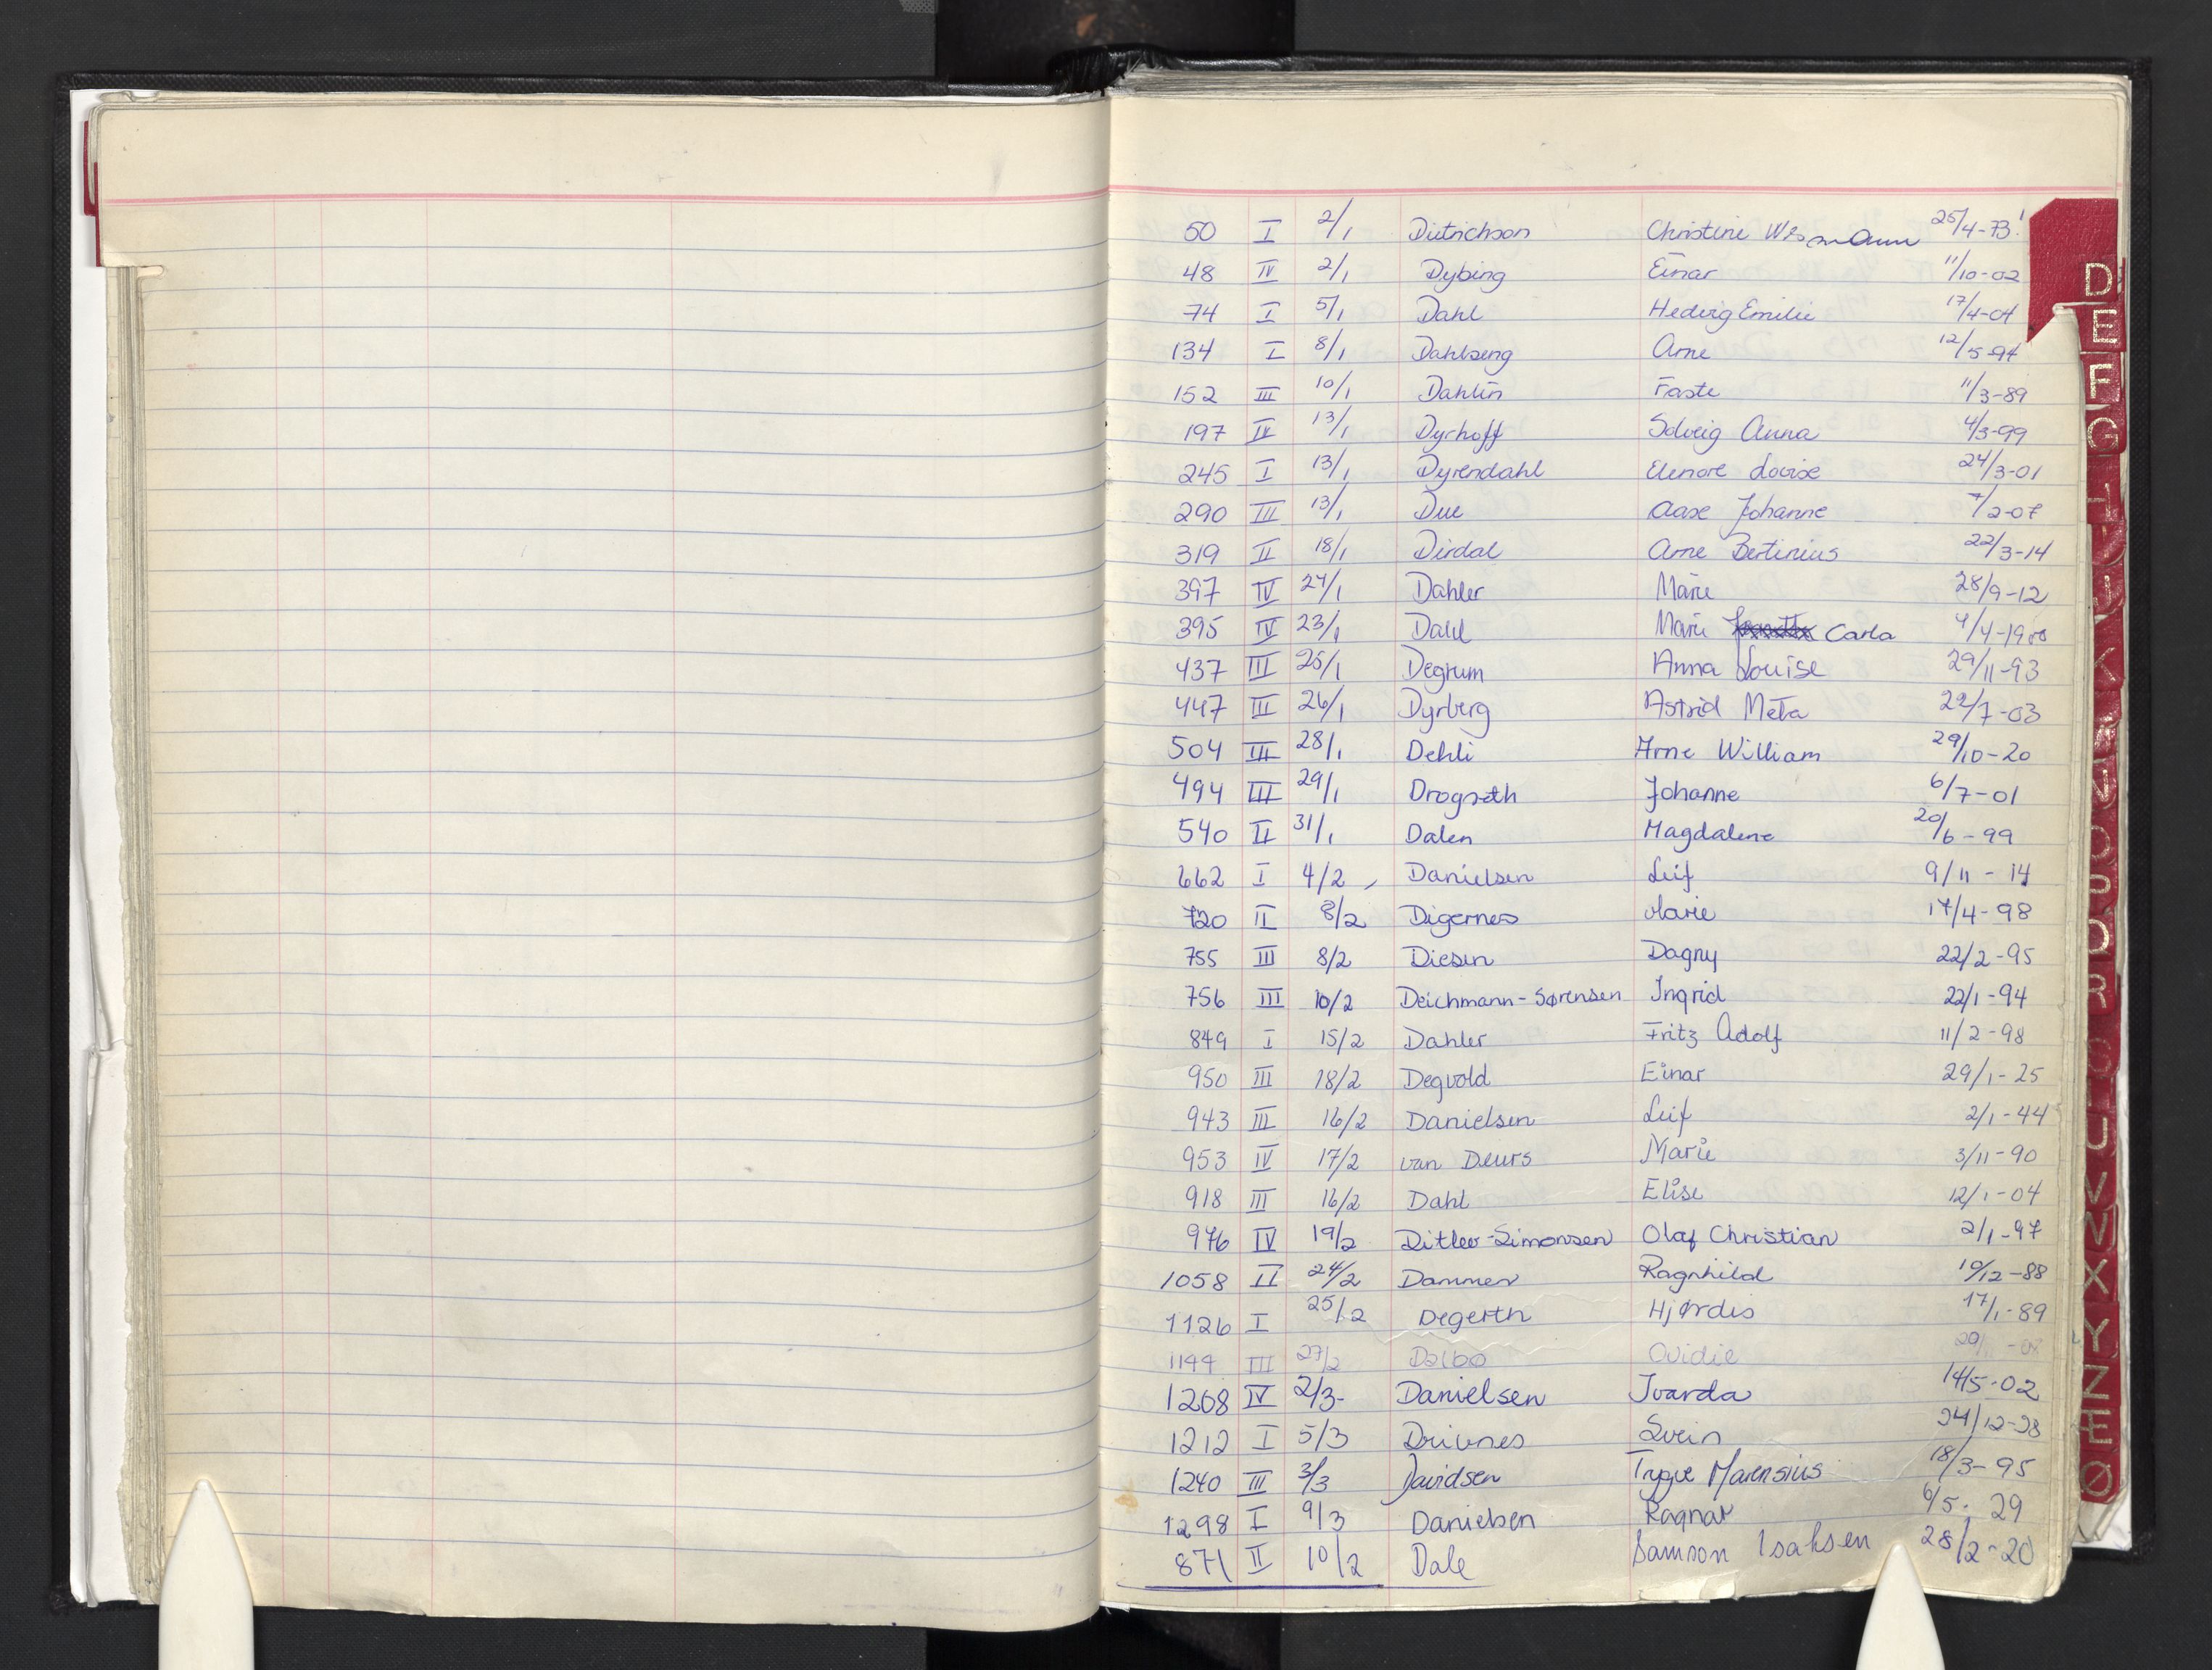 50 I 2/1 Ditrichson Christine Wesmann 25/4-73!
48 IV 2/1 Dybing Einar 11/10-02
74 I 5/1 Dahl Hedvig Emilie 17/4-04
134 I 8/1 Dahlseng Arne 12/5-94
152 III 10/1 Dahlin Faste 11/3-89
197 IV 13/1 Dyrhoff Solveig Anna 4/3-99
245 I 13/1 Dyrendahl Elenore Lovise 24/3-01
290 III 13/1 Due Aase Johanne 7/2-07
319 II 18/1 Dirdal Arne Bertinius 22/3-14
397 IV 24/1 Dahler Marie 28/9-12
395 IV 23/1 Dahl Marie Carla 4/4-1900
437 III 25/1 Degrum Anna Louise 29/11-93
447 III 26/1 Dyrberg Astrid Meta 29/7-03
504 III 28/1 Dehli Arne William 29/10-20
494 III 29/1 Drogseth Johanne 6/7-01
540 II 31/1 Dalen Magdalene 20/6-99
662 I 4/2 Danielsen Leif 9/11-14
720 II 8/2 Digernes Marie 17/4-98
755 III 8/2 Diesen Dagny 22/2-95
756 III 10/2 Deichmann-Sørensen Ingrid 22/1-94
849 I 15/2 Dahler Fritz Adolf 11/2-98
950 III 18/2 Degvold Einar 29/1-25
943 III 16/2 Danielsen Leif 2/1-44
953 IV 17/2 van Deurs Marie 3/11-90
918 III 16/2 Dahl Elise 12/1-04
976 IV 19/2 Ditlev-Simonsen Olaf Christian 2/1-97
1058 II 24/2 Dammen Ragnhild 19/12-88
1126 I 25/2 Degerth Hjørdis 17/1-89
1144 III 27/2 Dalbo Ovidie
1268 IV 2/3- Danielsen Ivarda 14/5-02
1212 I 5/3 Drivnes Svein 24/12-28
1240 III 3/3 Davidsen Trygve Marensius 18/3-95
1298 I 9/3 Danielsen Ragnar 6/5-29
871 II 10/2 Dale Samson Isaksen 28/2-20
D
E
F
G
H
I
J
K
N
O
P
R
S
U
V
W
X
Y
Z
Æ
Ø